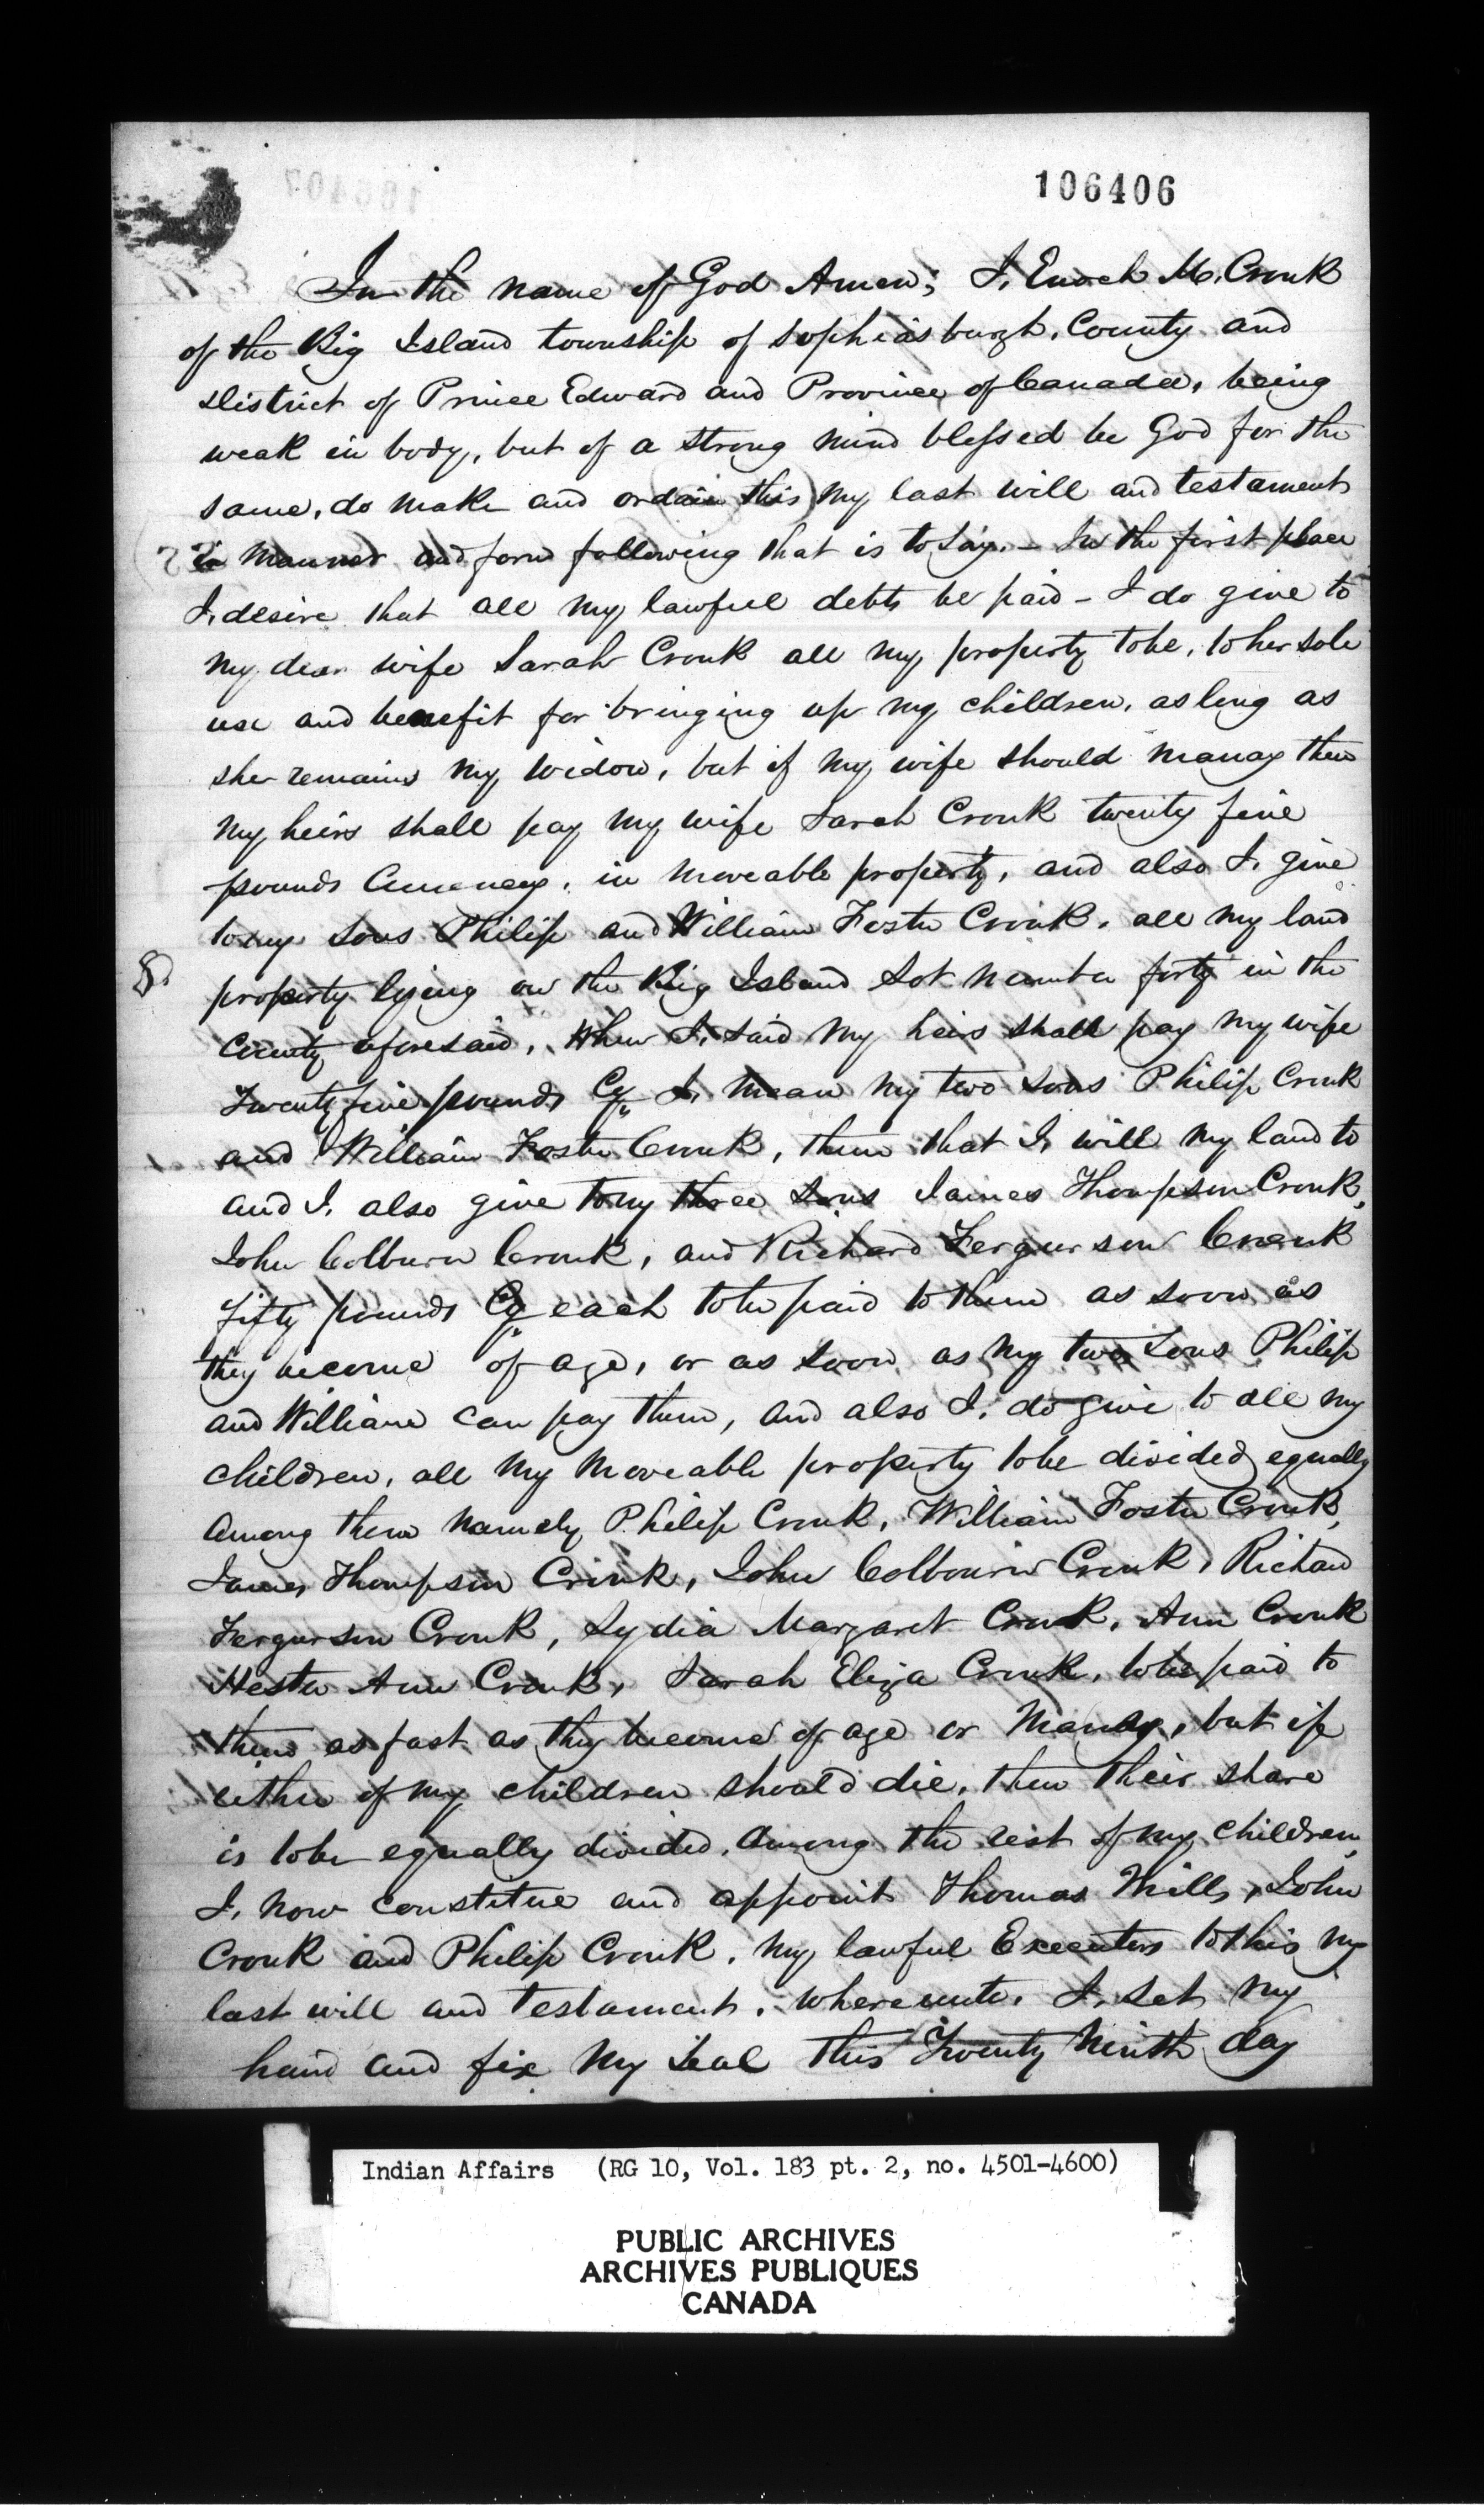 106406
In the name of God Amen; I, Enoch M. Cronk
of the Big Island township of Sophiasburgh, County and
District of Prince Edward and Province of Canada, being
weak in body, but of a strong mind blessed be God for the
same, do make and ordain this my last will and testament
in manner and form following that is to say. - In the first place
I, desire that all my lawful debts be paid - I do give to
my dear wife Sarah Cronk all my property to be, to her sole
use and benefit for bringing up my children, as long as
she remains my widow, but if my wife should marray then
my heirs shall pay my wife Sarah Cronk twenty five
pounds Currency, in moveable property, and also I, give
to my sons Philip and William Foster Cronk, all my land
property lying on the Big Island Lot number forty in the
County aforesaid, When I, said my heirs shall pay my wife
Twenty five pounds Cy I, mean my two sons Philip Cronk
and William Foster Cronk, them that I, will my land to
and I, also give to my three sons James Thompson Cronk,
John Colburn Cronk, and Richard Fergurson Cronk
fifty pounds Cy each to be paid to them as soon as
they become of age, or as soon as my two sons Philip
and William can pay them, and also I, do give to all my
children, all my moveable property to be divided equally
among them namely Philip Cronk, William Foster Cronk,
James Thompson Cronk, John Colbourn Cronk, Richard
Fergurson Cronk, Lydia Margaret Cronk, Ann Cronk
Hester Ann Cronk, Sarah Eliza Cronk, to be paid to
them as fast as they become of age or marray, but if
either of my children should die, then their share
is to be equally divided, among the rest of my children,
I, now constitue and appoint Thomas Mills, John
Cronk and Philip Cronk, my lawful Executors to this my
last will and testament, whereunto, I, set my
hand and fix my seal this Twenty Ninth day
Indian Affairs (RG 10, Vol. 183 pt. 2, no. 4501-4600)
PUBLIC ARCHIVES
ARCHIVES PUBLIQUES
CANADA